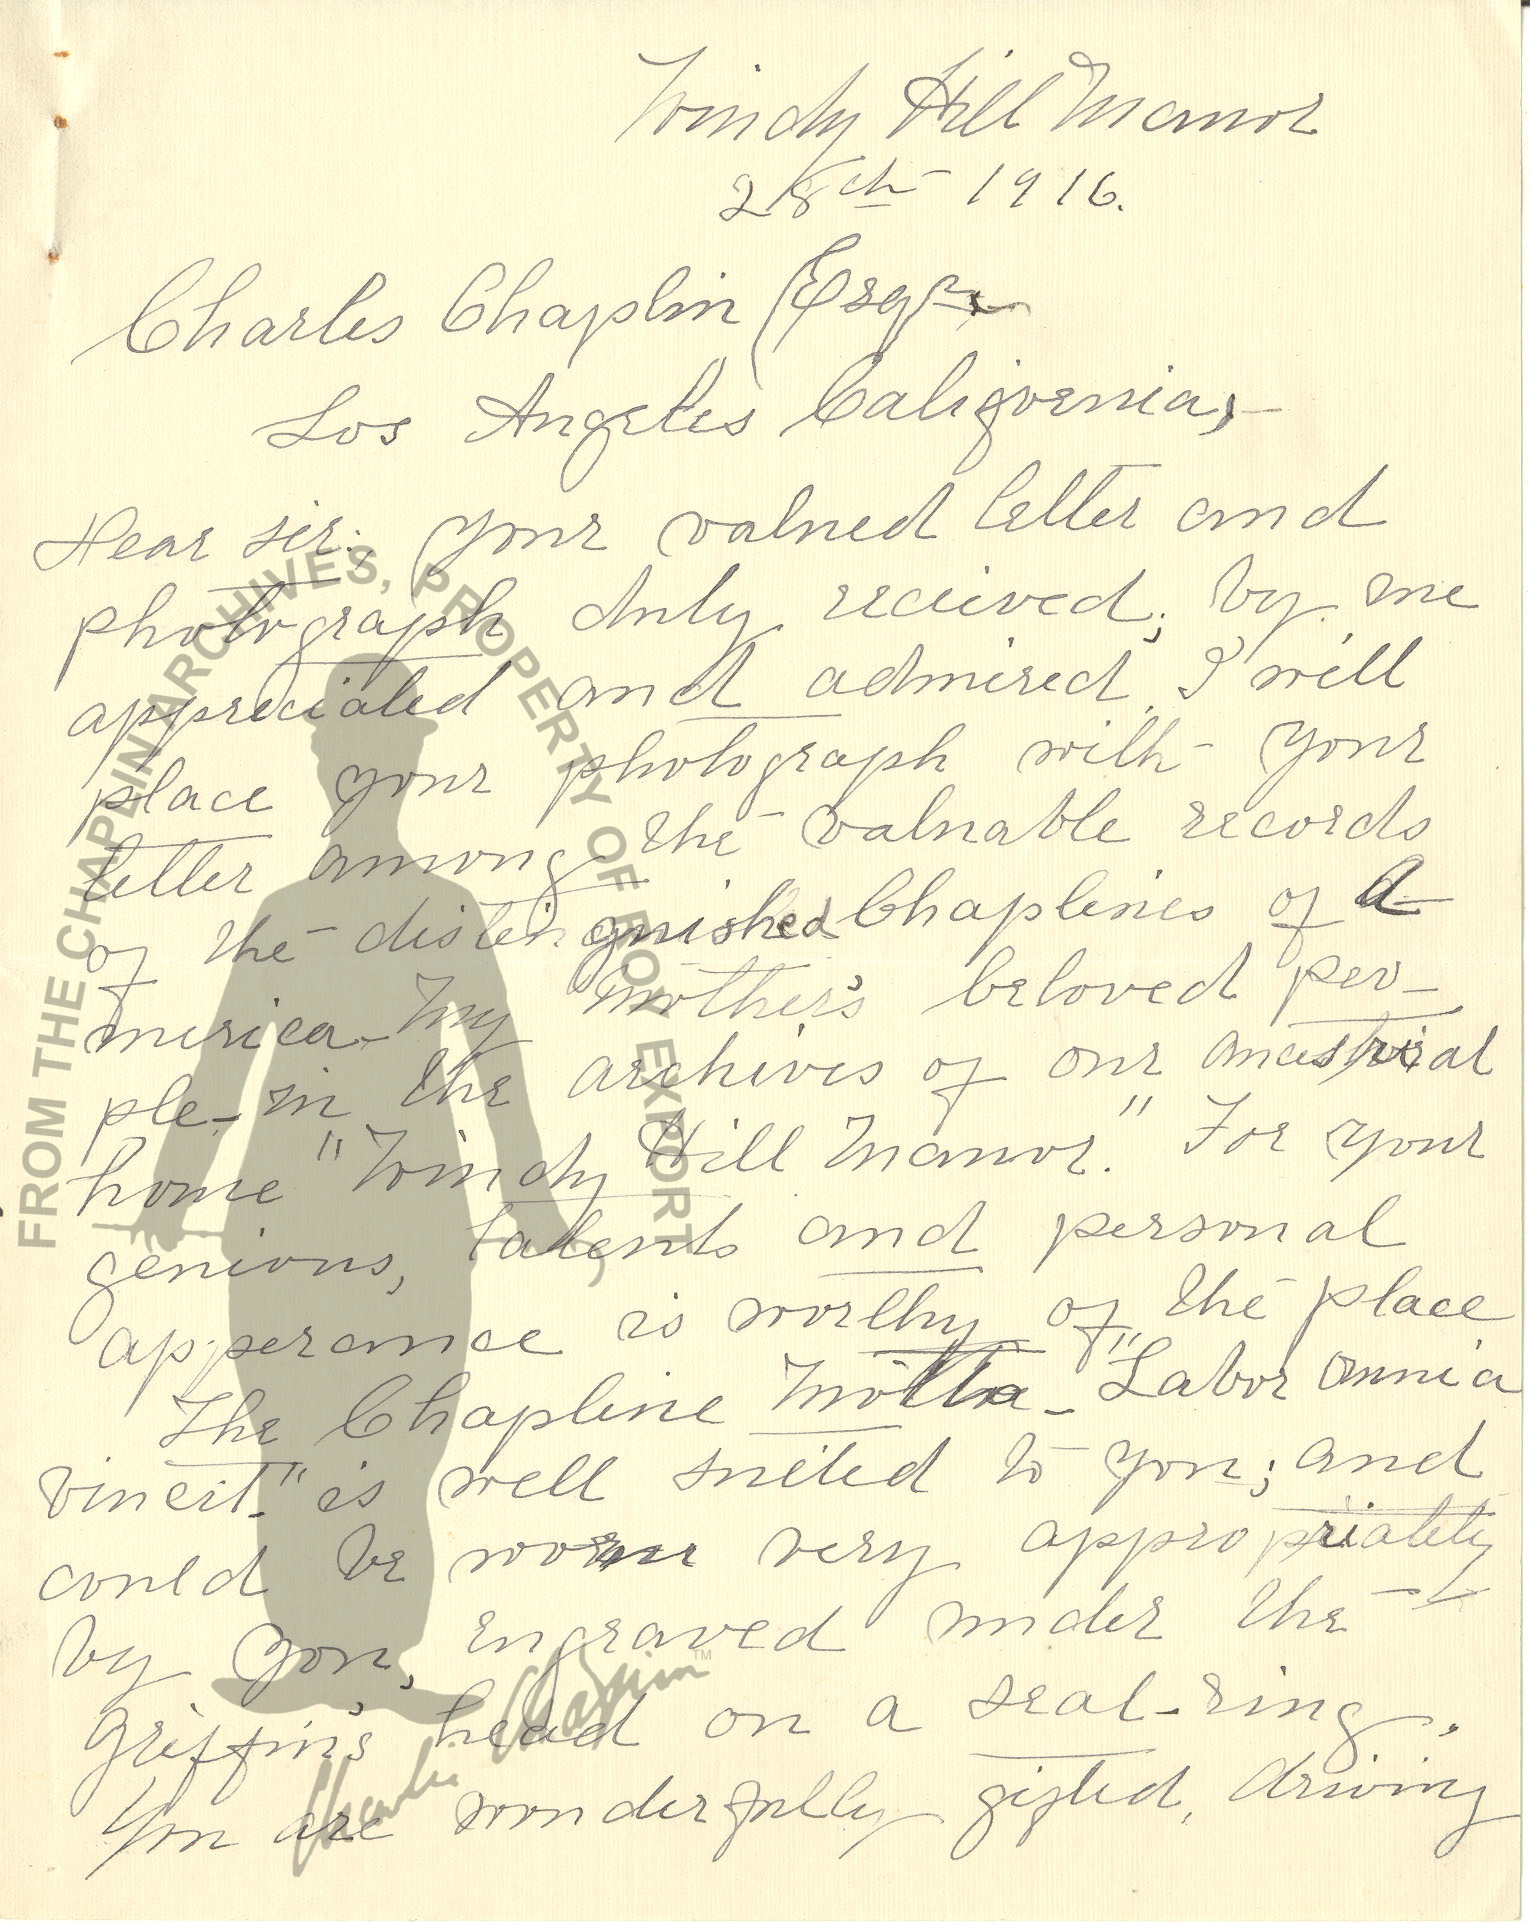 Windy Hill Manor
28th 1916.
Charles Chaplin Esqr
Los Angeles California,
Dear sir: your valued letter and
photograph duly recieved, by me
appreciated and admired. I will
place your photograph with your
letter among the valuable records
of the distinguished Chaplines of A-
merica - My mother's beloved peo-
ple - in the archives of our ancestral
home "Windy Hill Manor." For your
genious, talents and personal
apperance is worthy of the place
The Chapline Motto - "Labor omnia
vincit." is well suited to you; and
could be worn very appropriately
by you, engraved under the
Griffin's head on a seal-ring.
You are wonderfully gifted, driving
FROM THE CHAPLIN ARCHIVES, PROPERTY OF ROY EXPORT
Charlie Chaplin™